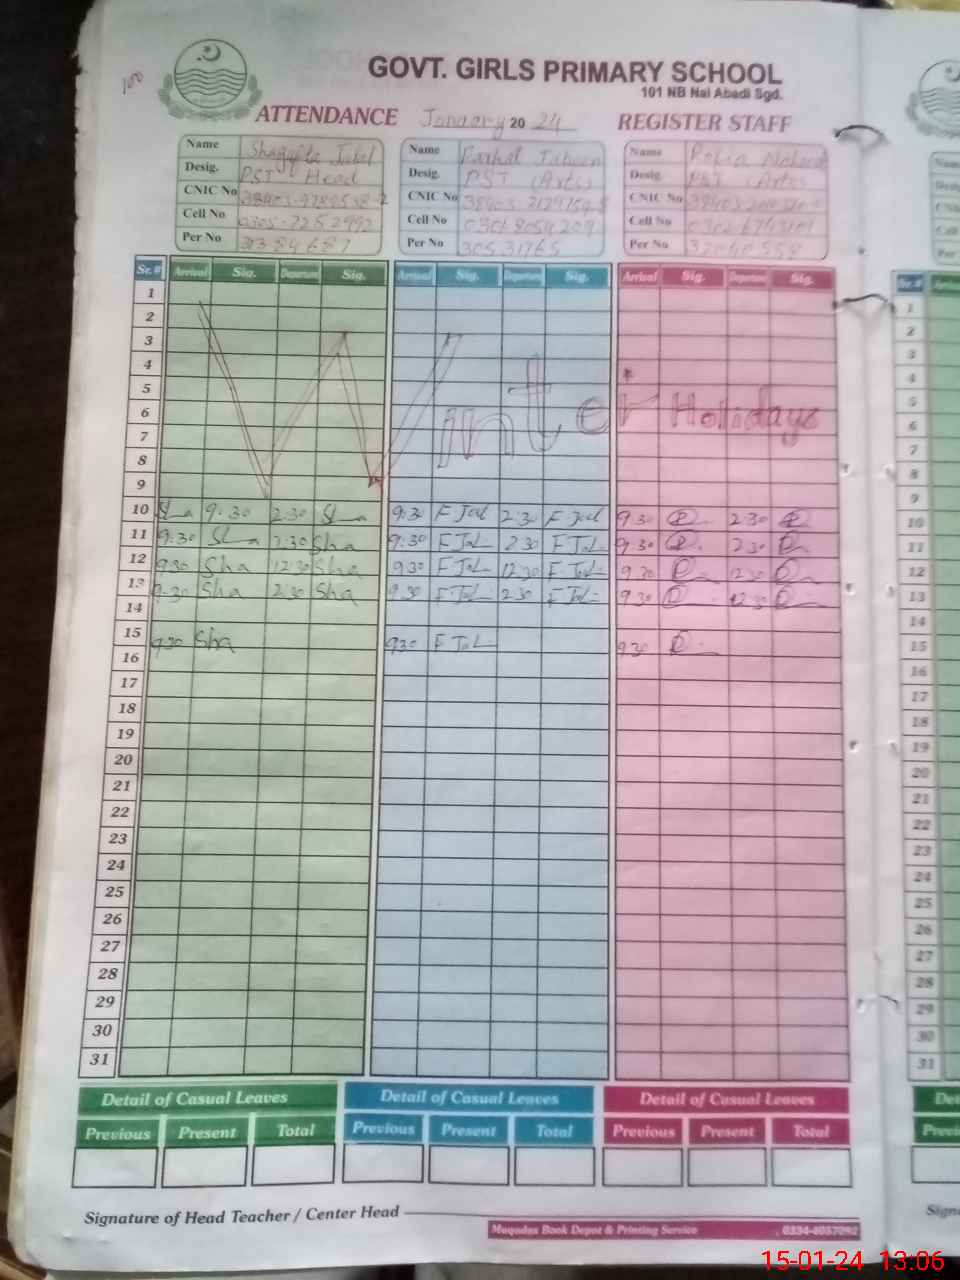 100
GOVT. GIRLS PRIMARY SCHOOL
101 NB Nai Abadi Sgd.
ATTENDANCE January 2024 REGISTER STAFF
Name Name Farhat Name
Desig. PST Head Desig. PST (Arts) Desig. PST (Arts)
CNIC No CNIC No CNIC No
Cell No 0305-7252992 Cell No 03018054209 Cell No
Per No 31384687 Per No 30531765 Per No 32040558
Sr.# Arrival Sig. Departure Sig. Arrival Sig. Departure Sig. Arrival Sig. Departure Sig.
1
2
3
4
5
Winter Holidays
6
7
8
9
10 Sha 9:30 2:30 Sha 9:30 F Jal 2:30 F Jal 9:30 2:30
11 9:30 Sha 2:30 Sha 9:30 F Jal 2:30 F Jal 9:30 2:30
12 9:30 Sha 12:30 Sha 9:30 F Jal 12:30 F Jal 9:30 12:30
13 9:30 Sha 2:30 Sha 9:30 F Jal 2:30 F Jal 9:30 12:30
14
15 9:30 Sha 9:30 F Jal 9:30
16
17
18
19
20
21
22
23
24
25
26
27
28
29
30
31
Detail of Casual Leaves Detail of Casual Leaves Detail of Casual Leaves
Previous Present Total Previous Present Total Previous Present Total
Signature of Head Teacher / Center Head
Muqadas Book Depot & Printing Service 0334-4057092
15-01-24 13:06